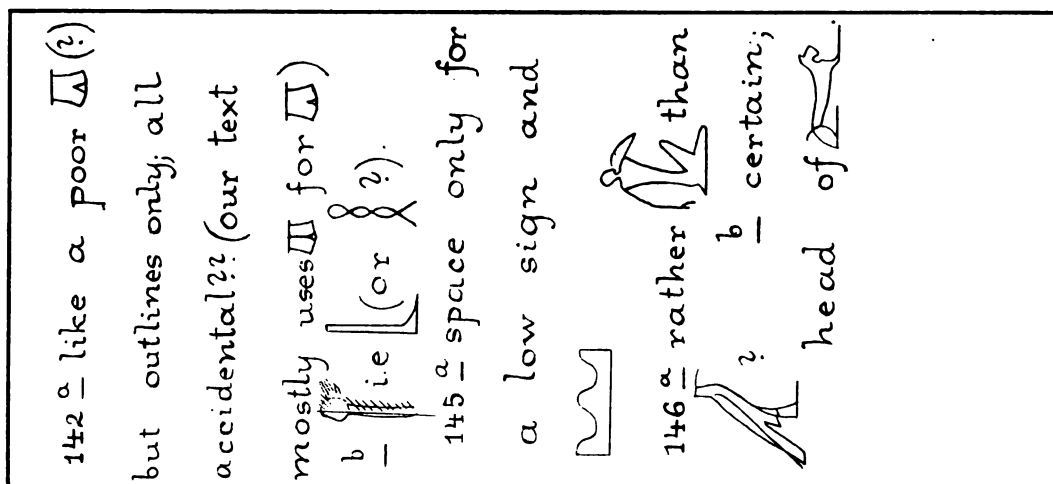 142ᵃ like a poor (?)
but outlines only; all
accidental?? (our text
mostly uses for )
b i.e (or ?).
145ᵃ space only for
a low sign and
146ᵃ rather than
? b certain;
head of .